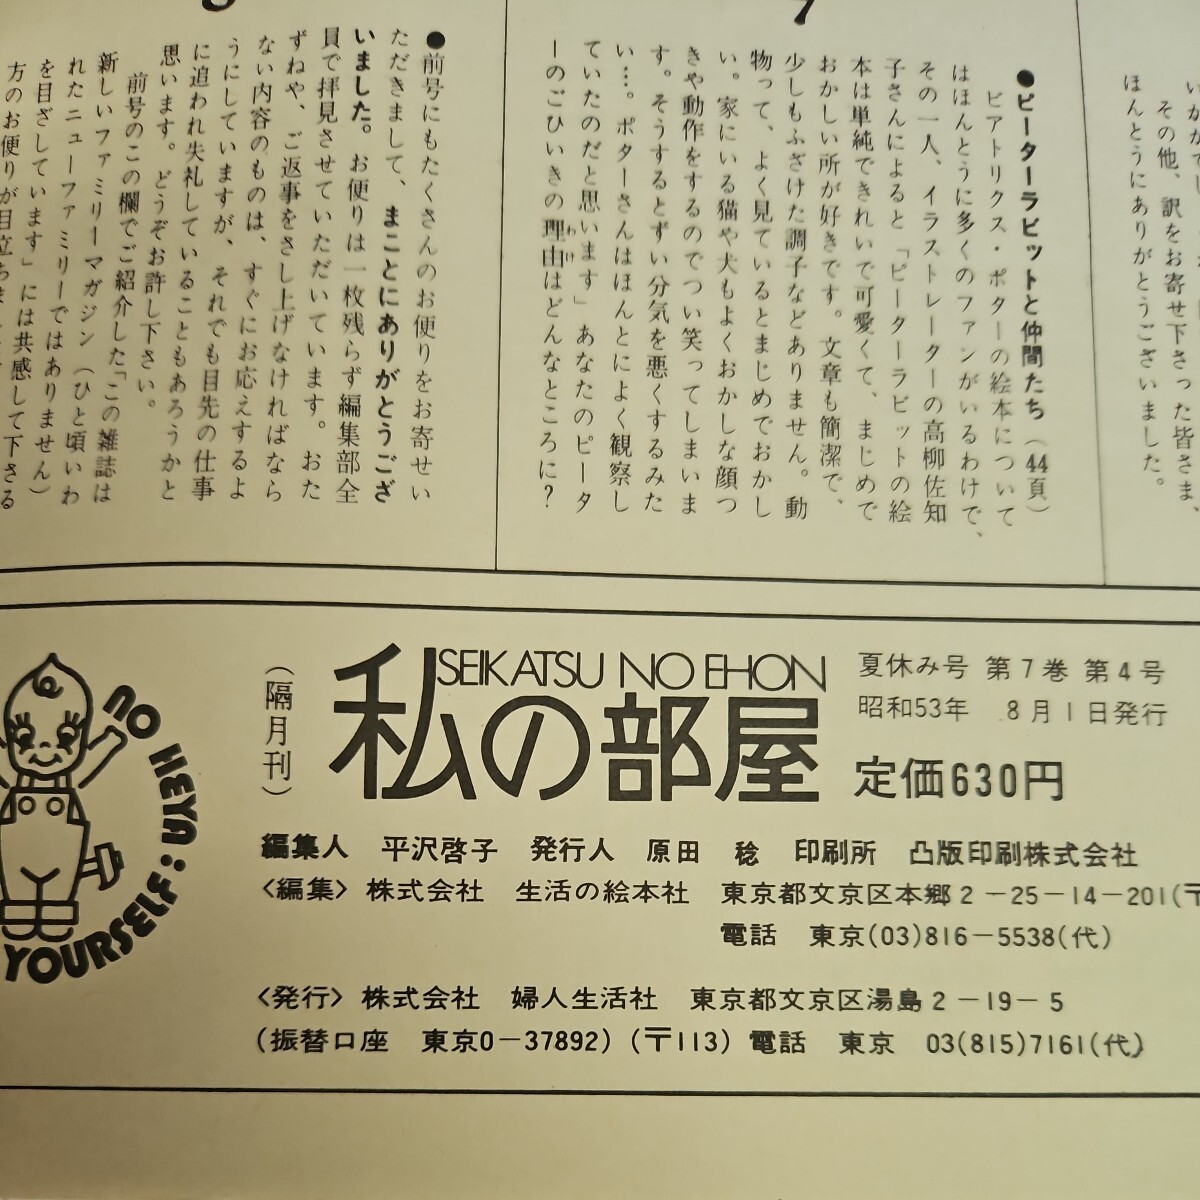 いました。
その他、訳をお寄せ下さった皆さま、
ほんとうにありがとうございました。
7
●ピーターラビットと仲間たち（44頁）
ビアトリクス・ポターの絵本について
はほんとうに多くのファンがいるわけで、
その一人、イラストレーターの高柳佐知
子さんによると「ピーターラビットの絵
本は単純できれいで可愛くて、まじめで
おかしい所が好きです。文章も簡潔で、
少しもふざけた調子などありません。動
物って、よく見ているとまじめでおかし
い。家にいる猫や犬もよくおかしな顔つ
きや動作をするのでつい笑ってしまいま
す。そうするとずい分気を悪くするみた
い…。ポターさんはほんとによく観察し
ていたのだと思います」あなたのピータ
ーのごひいきの理由はどんなところに?
わけ
●前号にもたくさんのお便りをお寄せい
ただきまして、まことにありがとうござ
いました。お便りは一枚残らず編集部全
員で拝見させていただいています。おた
ずねや、ご返事をさし上げなければなら
ない内容のものは、すぐにお応えするよ
うにしていますが、それでも目先の仕事
に追われ失礼していることもあろうかと
思います。どうぞお許し下さい。
前号のこの欄でご紹介した「この雑誌は
新しいファミリーマガジン（ひと頃いわ
れたニューファミリーではありません）
を目ざしています」には共感して下さる
方のお便りが目立ちま
NO HEYA:
YOURSELF:
（隔月刊）
SEIKATSU NO EHON
私の部屋
夏休み号 第7巻 第4号
昭和53年 8月1日発行
定価630円
編集人 平沢啓子 発行人 原田 稔 印刷所 凸版印刷株式会社
<編集> 株式会社 生活の絵本社 東京都文京区本郷2-25-14-201(〒
電話 東京(03)816-5538(代)
<発行> 株式会社 婦人生活社 東京都文京区湯島2-19-5
(振替口座 東京0-37892) (〒113) 電話 東京 03(815)7161(代)